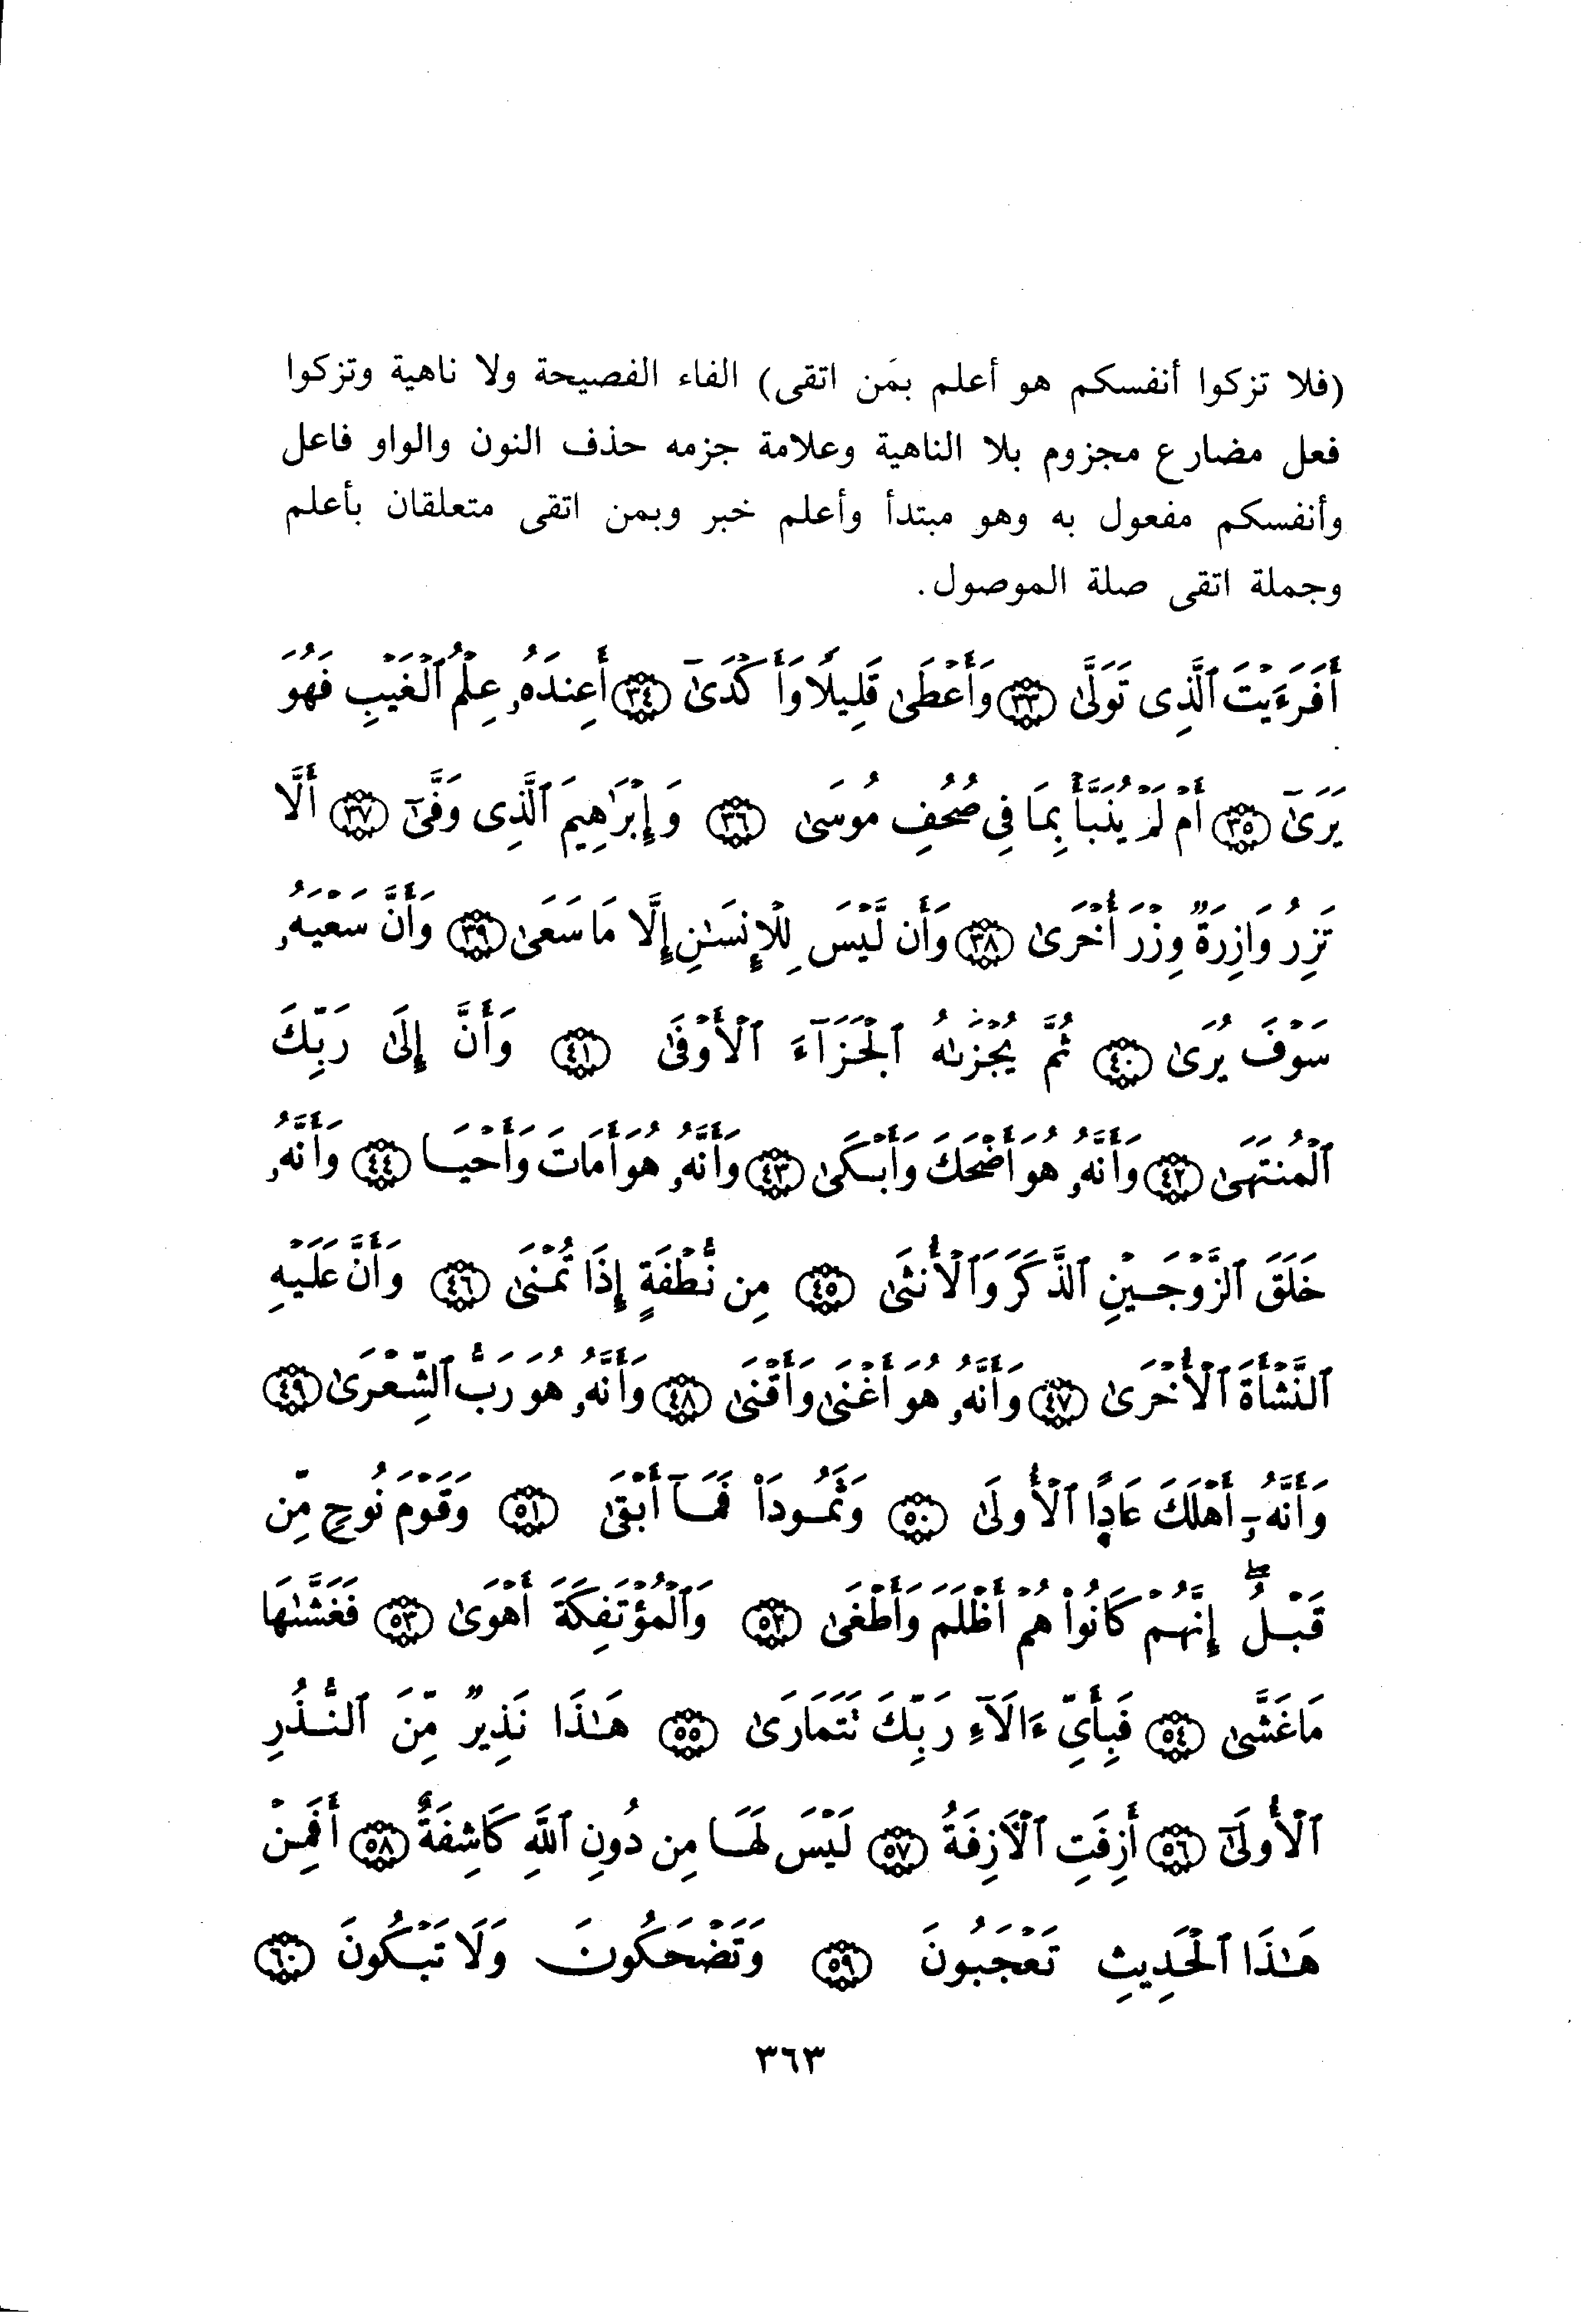 (فلا تزكوا أنفسكم هو أعلم بمَن اتقى) الفاء الفصيحة ولا ناهية وتزكوا
فعل مضارع مجزوم بلا الناهية وعلامة جزمه حذف النون والواو فاعل
وأنفسكم مفعول به وهو مبتدأ وأعلم خبر وبمن اتقى متعلقان بأعلم
وجملة اتقى صلة الموصول.
أَفَرَءَيْتَ ٱلَّذِى تَوَلَّىٰ ﴿٣٣﴾ وَأَعْطَىٰ قَلِيلًا وَأَكْدَىٰٓ ﴿٣٤﴾ أَعِندَهُۥ عِلْمُ ٱلْغَيْبِ فَهُوَ
يَرَىٰٓ ﴿٣٥﴾ أَمْ لَمْ يُنَبَّأْ بِمَا فِى صُحُفِ مُوسَىٰ ﴿٣٦﴾ وَإِبْرَٰهِيمَ ٱلَّذِى وَفَّىٰٓ ﴿٣٧﴾ أَلَّا
تَزِرُ وَازِرَةٌ وِزْرَ أُخْرَىٰ ﴿٣٨﴾ وَأَن لَّيْسَ لِلْإِنسَـٰنِ إِلَّا مَا سَعَىٰ ﴿٣٩﴾ وَأَنَّ سَعْيَهُۥ
سَوْفَ يُرَىٰ ﴿٤٠﴾ ثُمَّ يُجْزَىٰهُ ٱلْجَزَآءَ ٱلْأَوْفَىٰ ﴿٤١﴾ وَأَنَّ إِلَىٰ رَبِّكَ
ٱلْمُنتَهَىٰ ﴿٤٢﴾ وَأَنَّهُۥ هُوَ أَضْحَكَ وَأَبْكَىٰ ﴿٤٣﴾ وَأَنَّهُۥ هُوَ أَمَاتَ وَأَحْيَا ﴿٤٤﴾ وَأَنَّهُۥ
خَلَقَ ٱلزَّوْجَيْنِ ٱلذَّكَرَ وَٱلْأُنثَىٰ ﴿٤٥﴾ مِن نُّطْفَةٍ إِذَا تُمْنَىٰ ﴿٤٦﴾ وَأَنَّ عَلَيْهِ
ٱلنَّشْأَةَ ٱلْأُخْرَىٰ ﴿٤٧﴾ وَأَنَّهُۥ هُوَ أَغْنَىٰ وَأَقْنَىٰ ﴿٤٨﴾ وَأَنَّهُۥ هُوَ رَبُّ ٱلشِّعْرَىٰ ﴿٤٩﴾
وَأَنَّهُۥٓ أَهْلَكَ عَادًا ٱلْأُولَىٰ ﴿٥٠﴾ وَثَمُودَا۟ فَمَآ أَبْقَىٰ ﴿٥١﴾ وَقَوْمَ نُوحٍ مِّن
قَبْلُ ۖ إِنَّهُمْ كَانُوا۟ هُمْ أَظْلَمَ وَأَطْغَىٰ ﴿٥٢﴾ وَٱلْمُؤْتَفِكَةَ أَهْوَىٰ ﴿٥٣﴾ فَغَشَّىٰهَا
مَا غَشَّىٰ ﴿٥٤﴾ فَبِأَىِّ ءَالَآءِ رَبِّكَ تَتَمَارَىٰ ﴿٥٥﴾ هَـٰذَا نَذِيرٌ مِّنَ ٱلنُّذُرِ
ٱلْأُولَىٰٓ ﴿٥٦﴾ أَزِفَتِ ٱلْـَٔازِفَةُ ﴿٥٧﴾ لَيْسَ لَهَا مِن دُونِ ٱللَّهِ كَاشِفَةٌ ﴿٥٨﴾ أَفَمِنْ
هَـٰذَا ٱلْحَدِيثِ تَعْجَبُونَ ﴿٥٩﴾ وَتَضْحَكُونَ وَلَا تَبْكُونَ ﴿٦٠﴾
٣٦٣